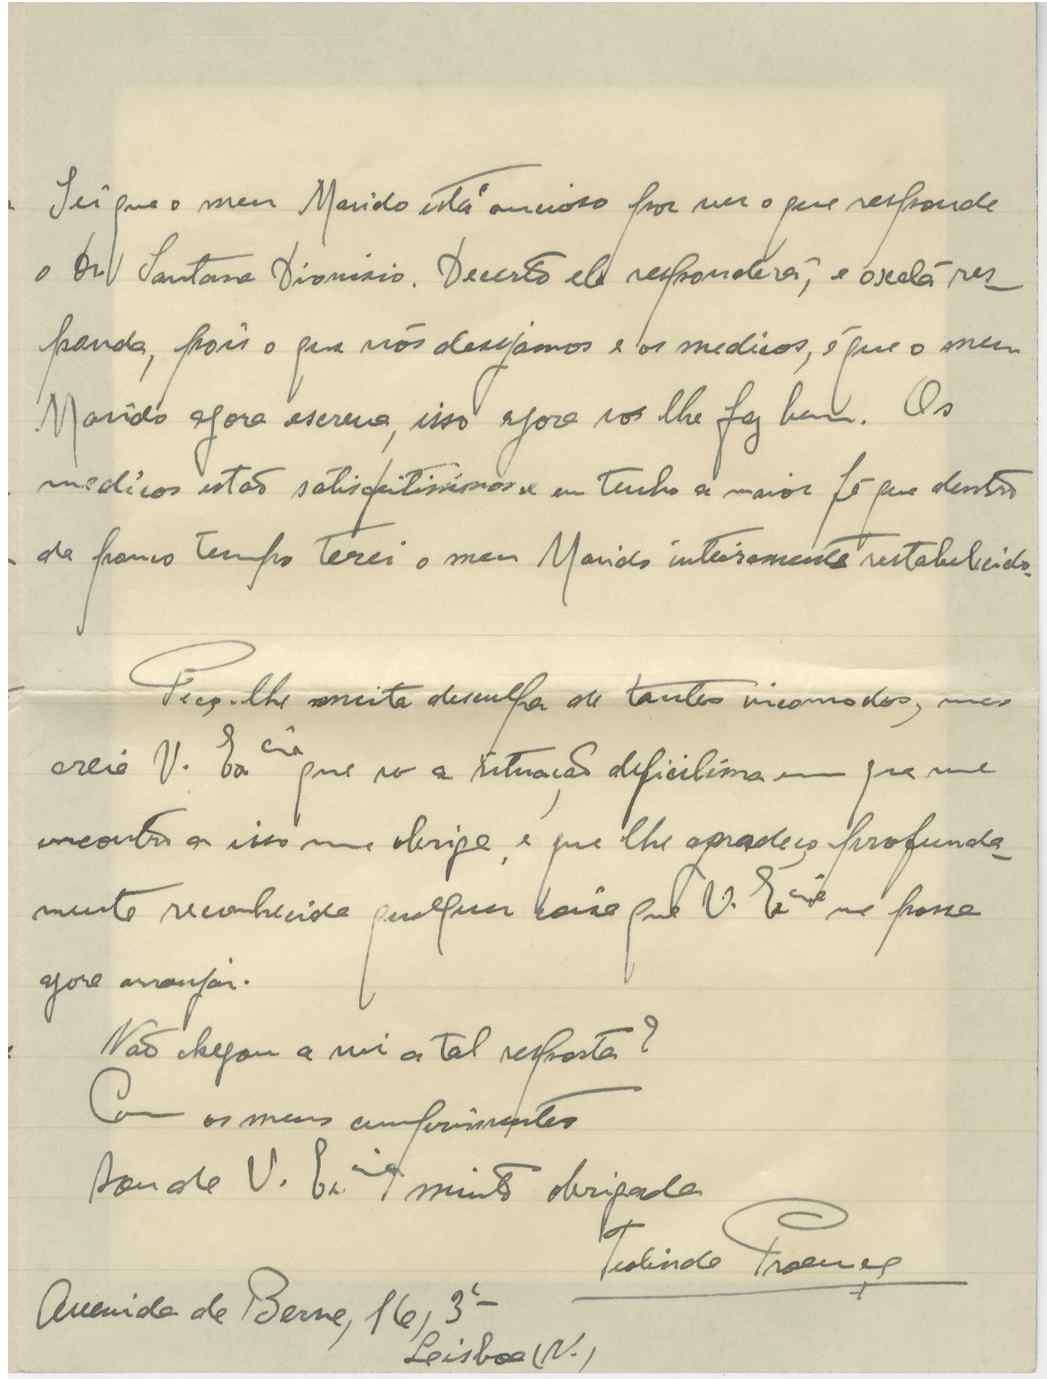 Sei que o meu Marido está ancioso por ver o que responde
o Dr Santana Dionisio. Decerto ele responderá, e oxalá res-
ponda, pois o que nós desejamos e os medicos, é que o meu
Marido agora escreva, isso agora só lhe faz bem. Os
medicos estão satisfeitissimos e eu tenho a maior fé que dentro
de pouco tempo terei o meu Marido inteiramente restabelecido.
Peço-lhe muita desculpa de tantos incomodos, mas
creia V. Excia que só a situação dificilima em que me
encontro a isso me obriga, e que lhe agradeço profunda-
mente reconhecida qualquer coisa que V. Excia me possa
agora arranjar.
Não chegou a vir a tal resposta?
Com os meus cumprimentos
sou de V. Excia muito obrigada
Teolinda Proença
Avenida de Berne, 16, 3º-
Leisboa (N.)